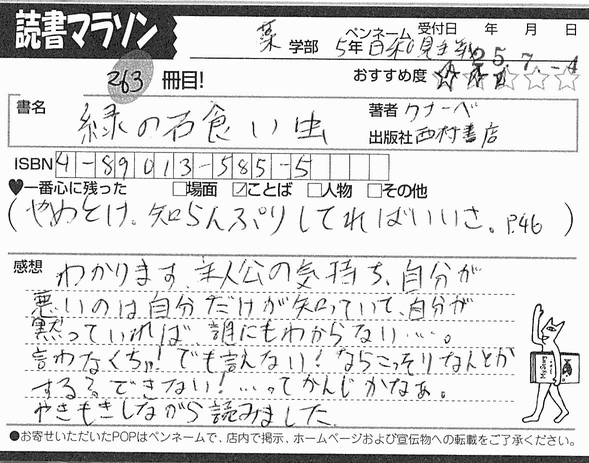 読書マラソン
薬 学部 5年 ペンネーム 日和見主義 受付日 年 月 日
25. 7. -4
263 冊目! おすすめ度 ☆☆☆☆☆
書名 緑の石食い虫
著者 クナーベ
出版社 西村書店
ISBN 4-89013-585-5
♥一番心に残った □場面 ☑ことば □人物 □その他
(やめとけ。知らんぷりしてればいいさ。P.46)
感想 わかります、主人公の気持ち、自分が
悪いのは自分だけが知っていて、自分が
黙っていれば 誰にもわからない…。
言わなくちゃ!でも言えない!ならこっそりなんとか
する?できない!…ってかんじかなぁ。
やきもきしながら読みました
●お寄せいただいたPOPはペンネームで、店内で掲示、ホームページおよび宣伝物への転載をご了承ください。